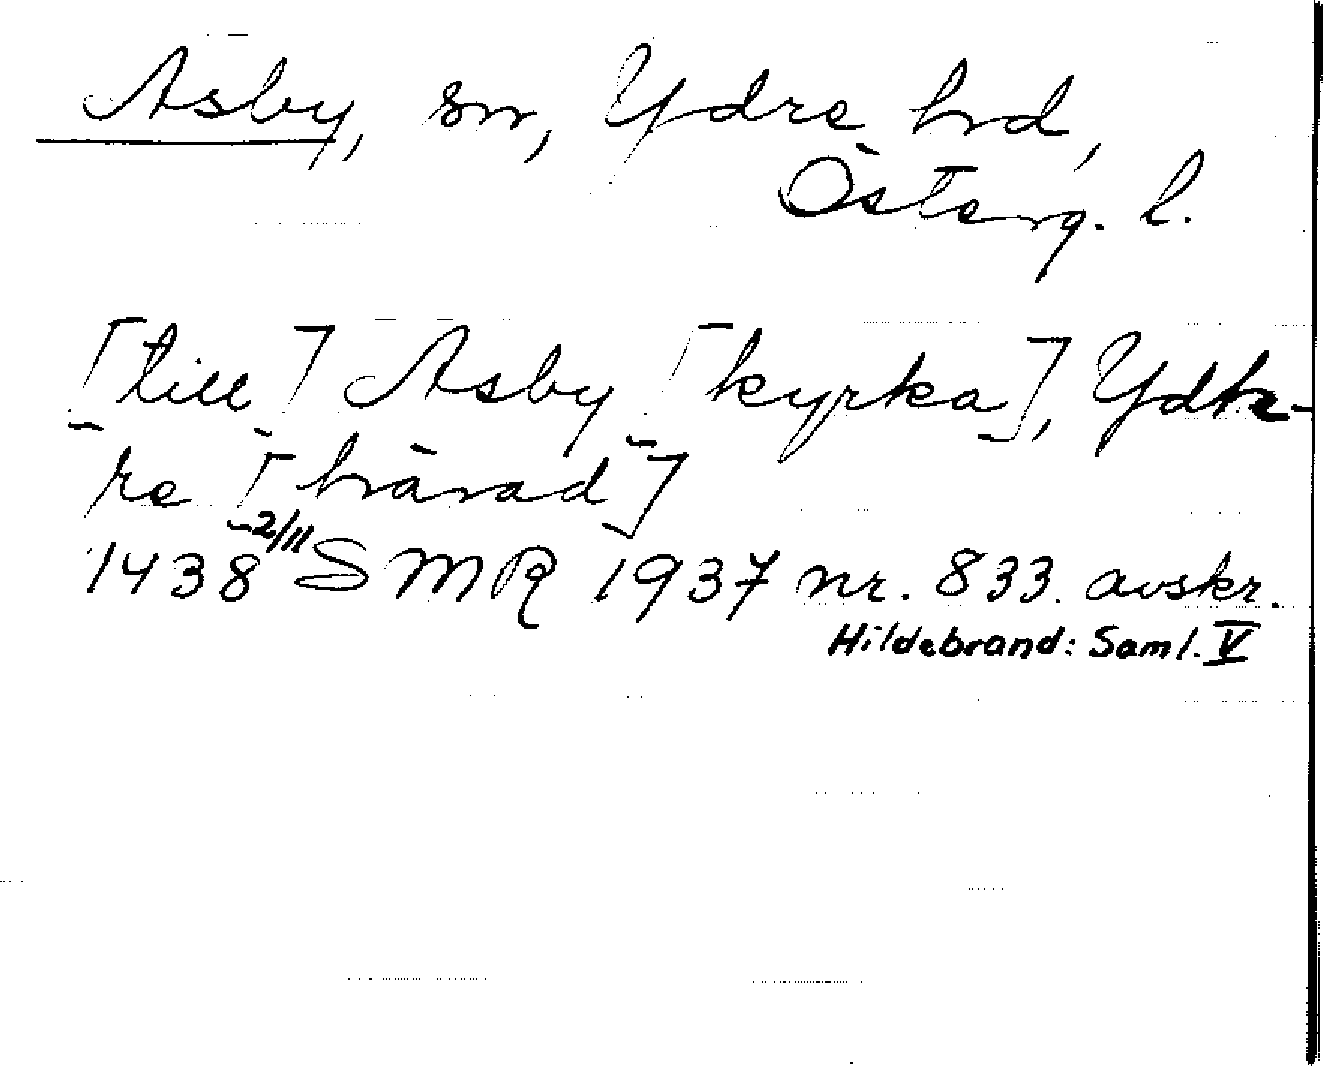 Asby, sn, Ydre hrd,
Österg. l.
[till] Asby [kyrka], Ydh-
re [härad]
1438 2/11 SMR 1937 nr. 833. avskr.
Hildebrand: Saml. V